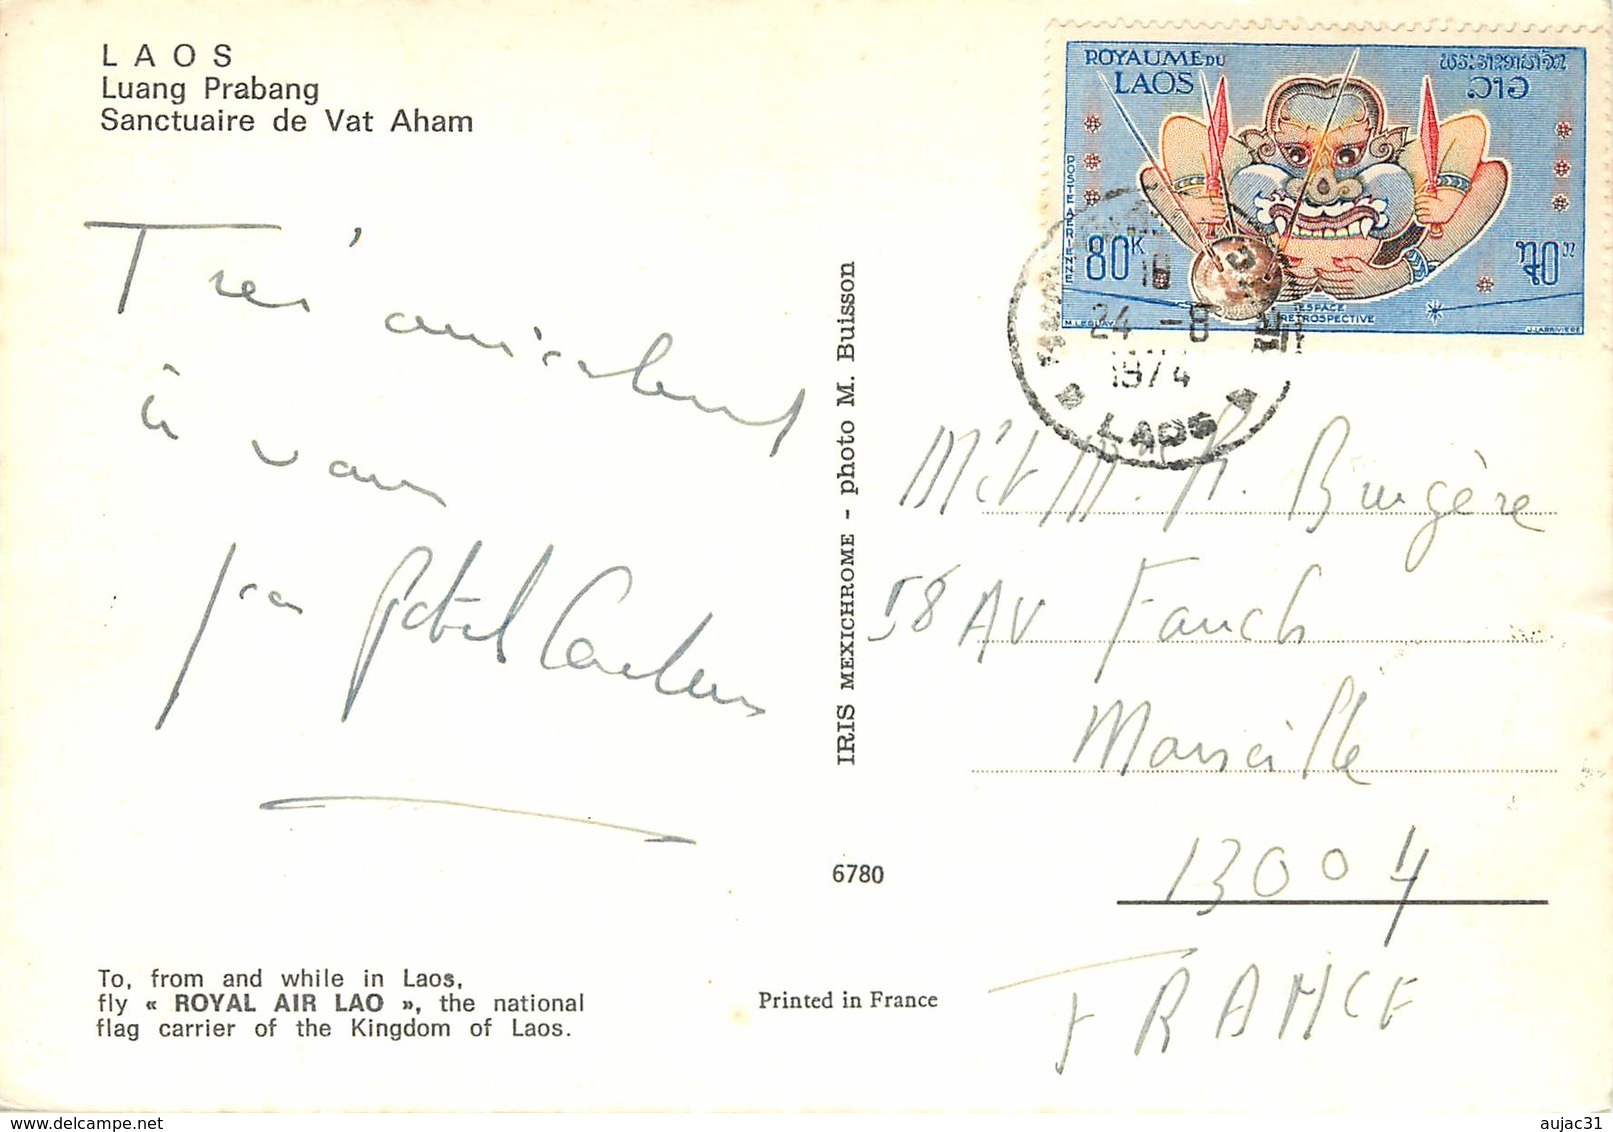 LAOS
Luang Prabang
Sanctuaire de Vat Aham
ROYAUME DU
LAOS
ພຣະຣາຊອານາຈັກ
ລາວ
POSTE AERIENNE
80K
ESPACE
RETROSPECTIVE
M. LEGUAY
J. LARRIVIERE
18
24 -8
1974
LAOS
Tres amicalement
à vous
IRIS MEXICHROME - photo M. Buisson
6780
M. R. Brugère
58 AV Fauch
Marseille
13004
FRANCE
To, from and while in Laos,
fly « ROYAL AIR LAO », the national
flag carrier of the Kingdom of Laos.
Printed in France
aujac31